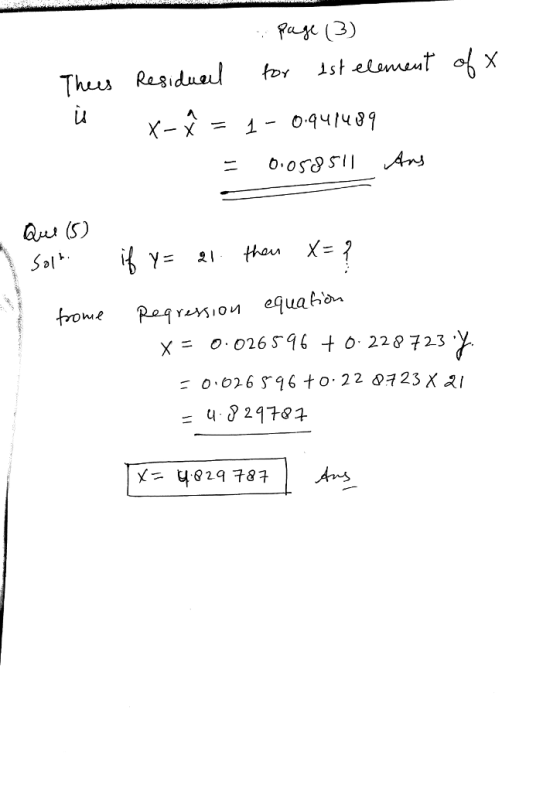 Page (3)
Thus Residual for 1st element of X
is
X - X̂ = 1 - 0.941489
= 0.058511 Ans
Que (5)
Solⁿ. if Y = 21 then X = ?
from Regression equation
X = 0.026596 + 0.228723 · Y.
= 0.026596 + 0.228723 X 21
= 4.829787
X = 4.829787 Ans